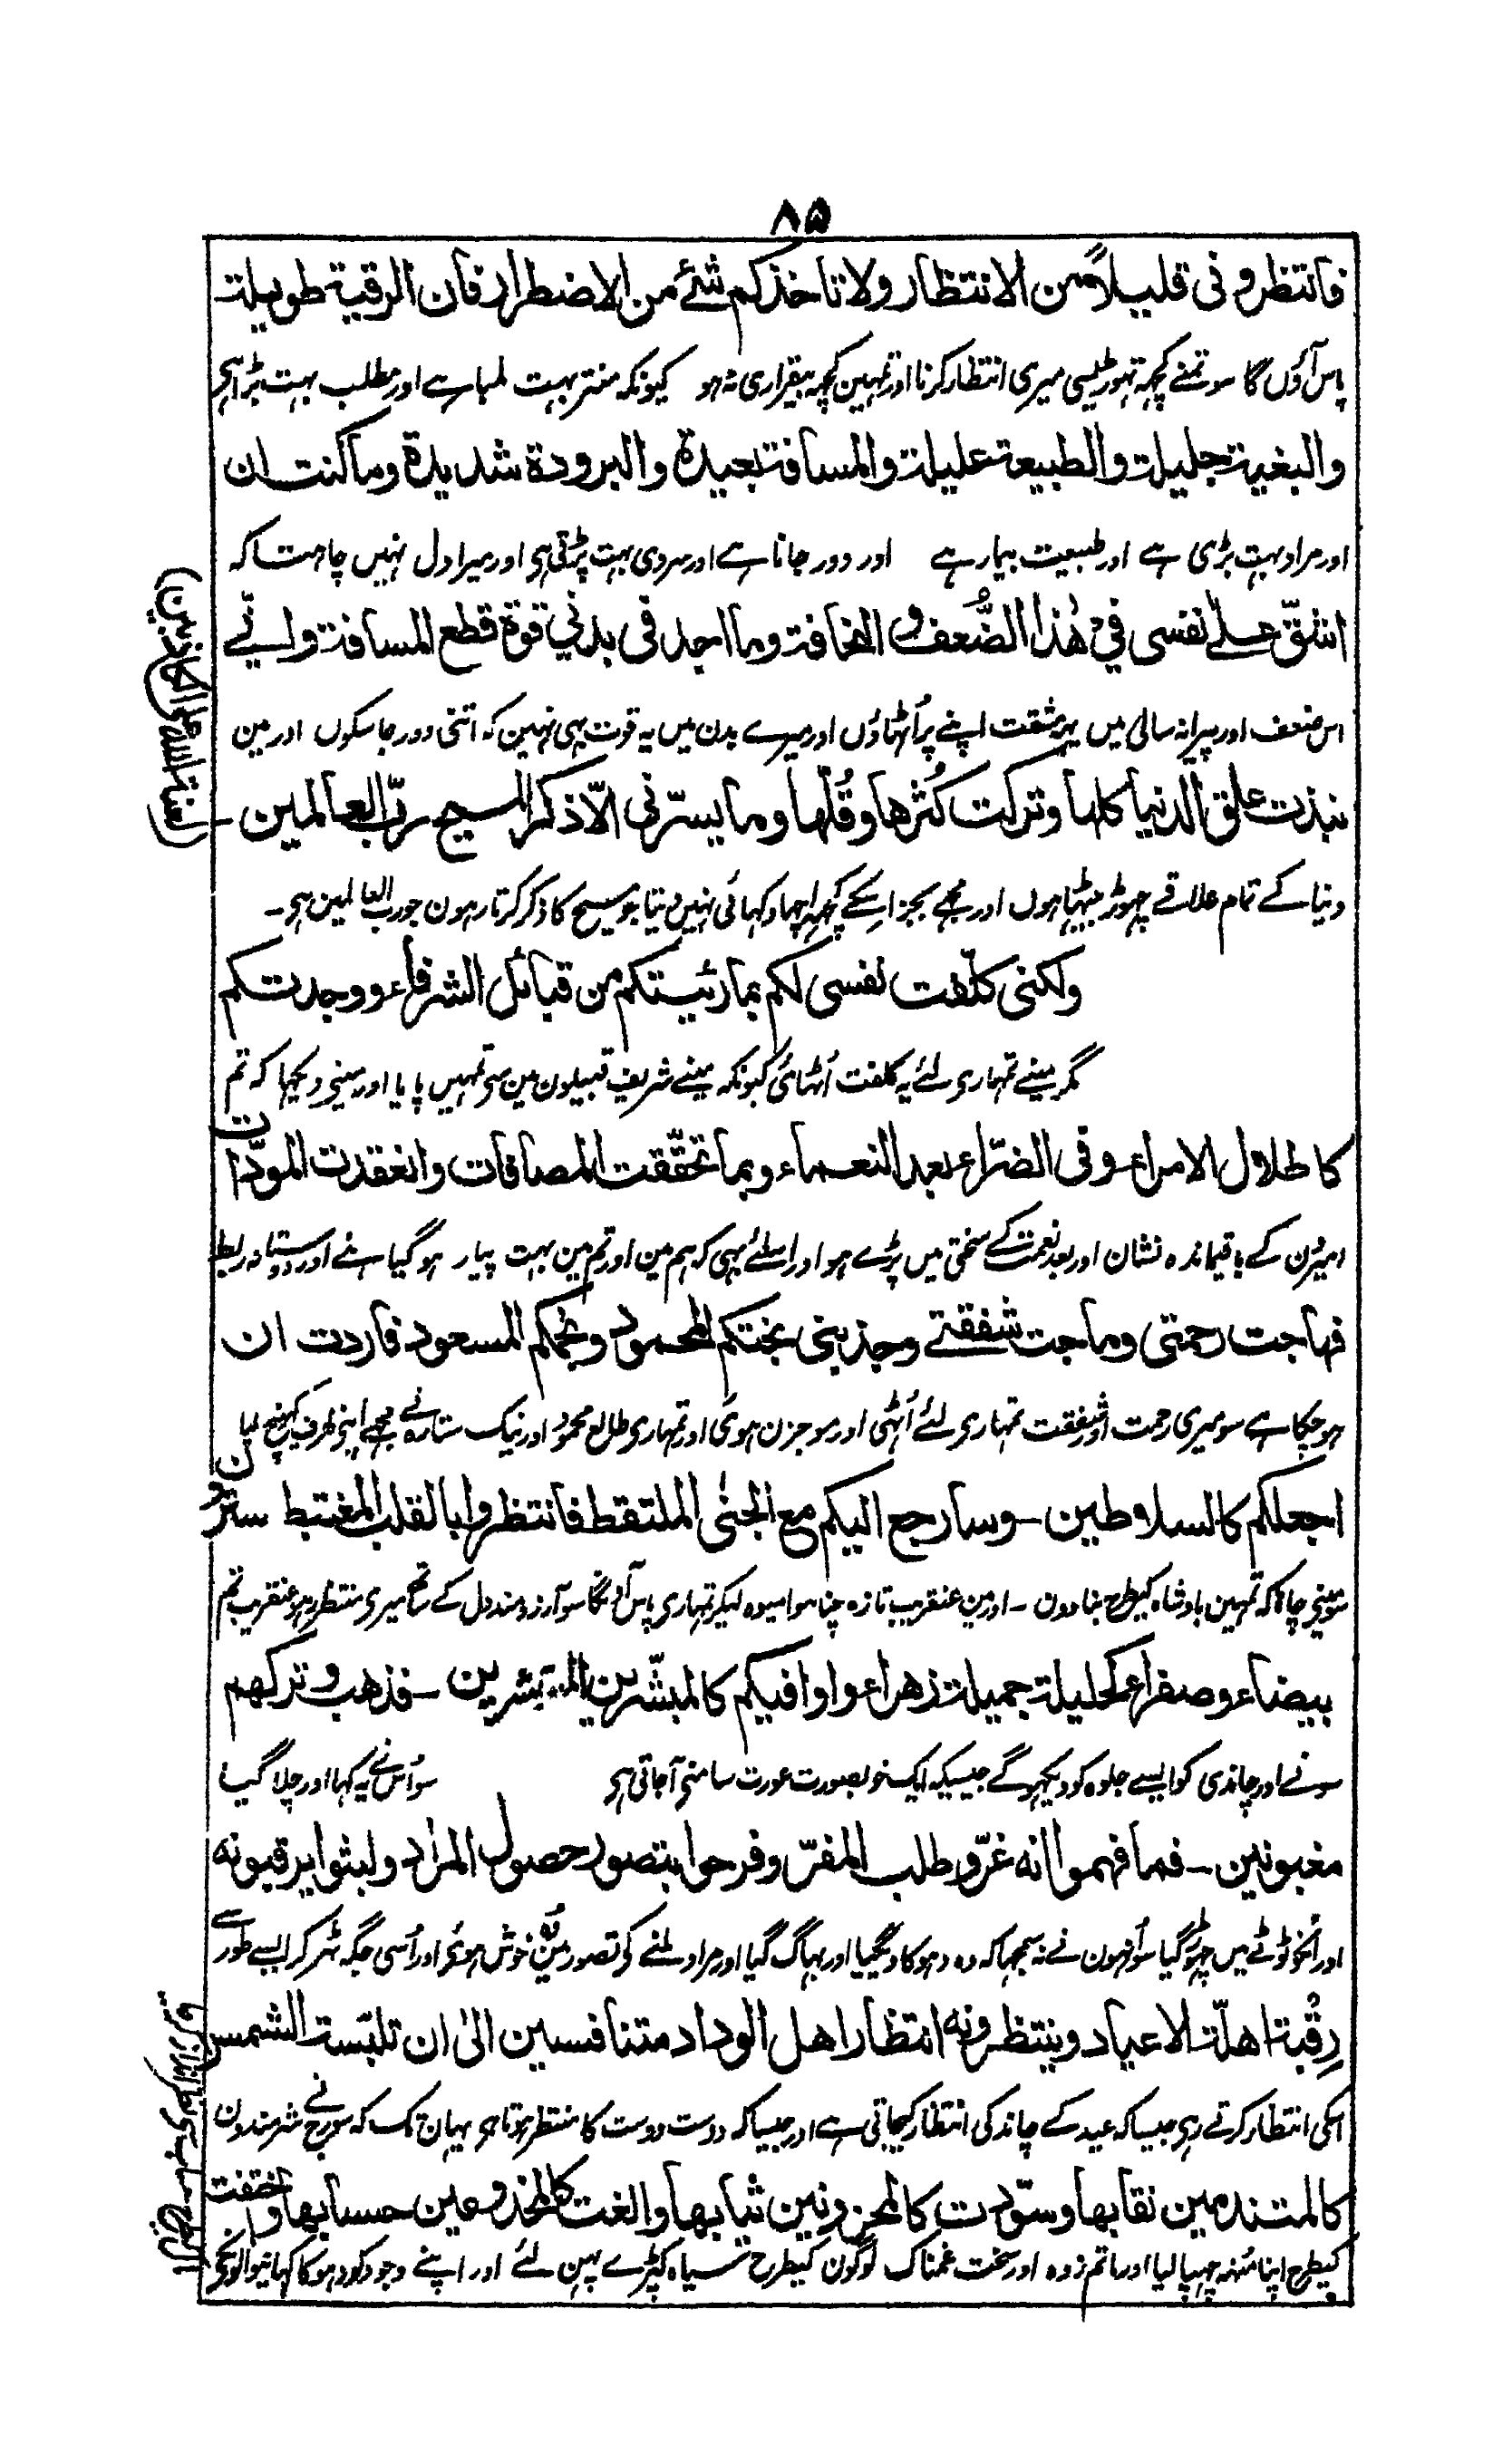 ۸۵
فانتظرونی قلیلاً من الانتظار ولا تاخذکم شئے من الاضطرار فان الرقیة طویلة
پاس آؤں گا سو تمنے کچہہ تہوڑیسی میری انتظار کرنا اور تمہین کچہہ بیقراری نہ ہو کیونکہ منتر بہت لمبا ہے اور مطلب بہت بڑا ہی
والبغیة جلیلة والطبیعة علیلة والمسافة بعیدة والبرودة شدیدة وما کنت ان
اور مراد بہت بڑی ہے اور طبیعت بیمار ہے اور دور جانا ہے اور سردی بہت پڑتی ہی اور میرا دل نہیں چاہتا کہ
اشقّ علے نفسی فی هٰذا الضُّعف و النحافة وما اجد فی بدنی قوة قطع المسافة وانّے
اس ضعف اور پیرانہ سالی میں یہ مشقت اپنے پر اُٹھاؤں اور میرے بدن میں یہ قوت بہی نہین کہ اتنی دور جا سکوں اور مین
نبذت علق الدنیا کلها وترکت کُثرها وقُلّها وما یسرّنی الّا ذکر المسیح ربّ العالمین
(لعنة الله علی الکاذبین)
دنیا کے تمام علاقے چہوڑ بیٹہا ہوں اور مجہے بجز اسکے کچہہ اچہا دکہائی نہیں دیتا جو مسیح کا ذکر کرتا رہون جو رب العالمین ہی۔
ولکنی کلّفت نفسی لکم بما رئیتکم من قبائل الشرفاء ووجدتکم
مگر مینے تمہاری لئے یہ کلفت اُٹہائی کیونکہ مینے شریف قبیلون مین سی تمہیں پایا اور مینی دیکہا کہ تم
کاطلال الامراء وفی الضرّاء بعد النعماء وبما تحقّقت المصافات وانعقدت المودّات
امیرُن کے باقیماندہ نشان اور بعد نعمت کے سختی میں پڑے ہو اور اسلئے بہی کہ ہم مین اور تم مین بہت پیار ہو گیا ہے اور دوستانہ ربط
فهاجت رحمتی وماجت شفقتے وجذبنی بختکم المحمود ونجمکم المسعود فاردت ان
ہو چکا ہے سو میری رحمت اور شفقت تمہاری لئے اُٹہی اور موجزن ہوئی اور تمہاری طالع محمود اور نیک ستارہ نے مجہے اپنی طرف کہینچ لیا
اجعلکم کالسلاطین - وسارجع الیکم مع الجنٰی الملتقط فانتظروا بالقلب المغتبط سترون
سو مینی چاہا کہ تمہین بادشاہ کیطرح بنا دون ۔ اور مین عنقریب تازہ چنا ہوا میوہ لیکر تمہاری پاس آؤنگا سو آرزومند دل کے ساتھ میری منتظر رہو عنقریب تم
بیضاء وصفراء کحلیلة جمیلة زهراء واوافیکم کالمبشّرین المستبشرین - فذهب وترکهم
سونے اور چاندی کو ایسے جلوہ کو دیکہو گے جیسیکہ ایک خوبصورت عورت سامنی آجاتی ہی سو اُس نے یہ کہا اور چلا گیا
مغبونین - فما فهموا انه غرّ وطلب المفرّ وفرحوا بتصور حصول المراد ولبثوا یرقبونه
اور اُنکو ٹوٹے میں چہوڑ گیا سو اُنہون نے نہ سمجہا کہ وہ دہوکا دیگیا اور بہاگ گیا اور مراد ملنے کو تصور مین خوش ہوئی اور اُسی جگہ ٹہر کر ایسے طور سے
رِقبة اهلّة الاعیاد وینتظرونه انتظار اهل الوداد متنافسین الیٰ ان تلبّست الشمس
اسکی انتظار کرتے رہی جیسا کہ عید کے چاند کی انتظار کیجاتی ہے اور جیسا کہ دوست دوست کا منتظر ہوتا ہی یہان تک کہ سورج نے شرمندون
کالمتندمین نقابها وسوّدت کالمحزونین ثیابها والغت کالمخدوعین حسابها واختفت
کیطرح اپنا مُنہ چہپا لیا اور ماتم زدہ اور سخت غمناک لوگون کیطرح سیاہ کپڑے پہن لئے اور اپنے وجود کو دہوکا کہانیوالونکی